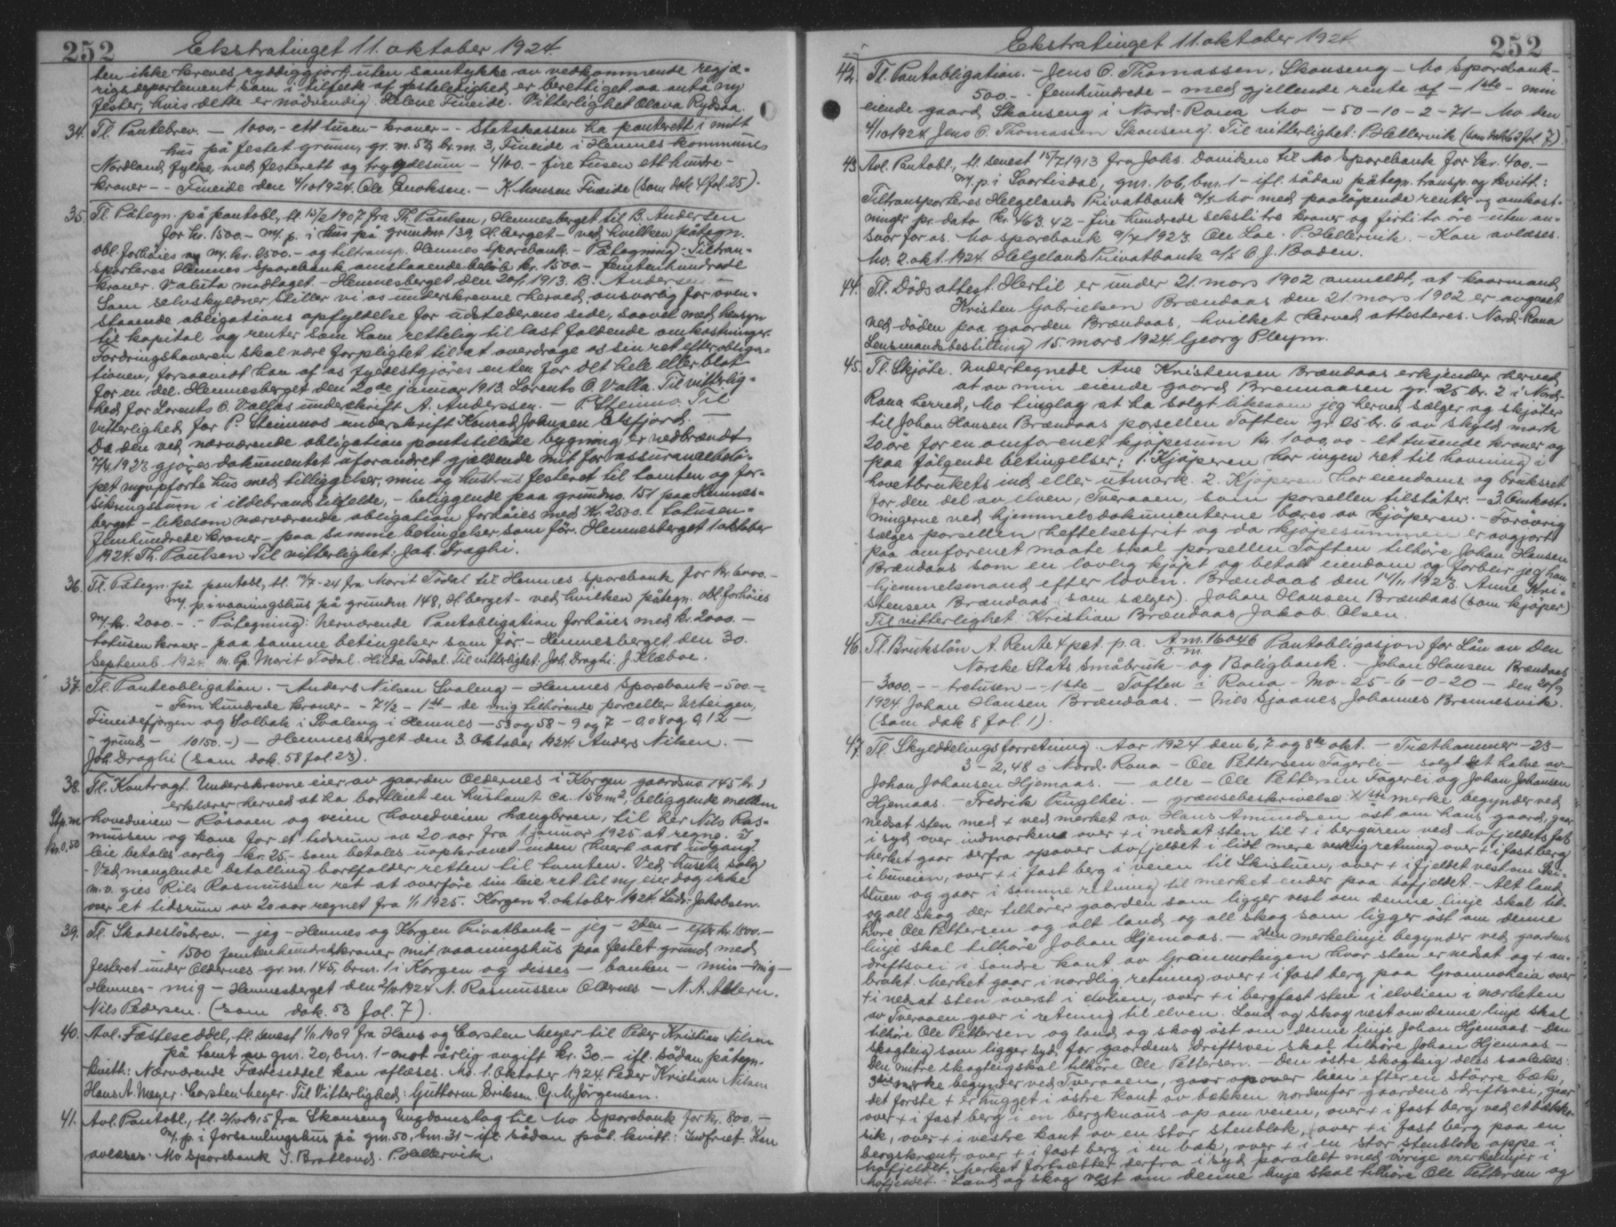 252
Ekstratinget 11. oktober 1924.
ten ikke kreves ryddiggjort uten samtykke av vedkommende regjæ-
ringsdepartement som i tilfelle af festeledighet er berettiget aa anta ny
fester, hvis dette er nødvendig. Helene Fineide. Vitterlighet Olava Rydsaa.
34. Tl. Pantebrev. - 1000.- ett tusen - kroner - - Statskassen ha panterett i mitt
hus på festet grunn, gr. m. 53, br. m. 3, Fineide i Hemnes kommune,
Nordland fylke med festerett og trygdesum - 4100.- fire tusen ett hundre -
kroner - - Fineide den 4/10 1924. Ole Enoksen. - K. Fineide (som dok 4 fol. 25).
35. Tl. Påtegn. på pantobl, tl. 15/2 1907 fra Th. Paulsen, Hemnesberget til B. Andersen
for kr. 1500.- m/ p. i hus på grundno 139 H.berget - ved hvilken påtegn.
obl forhøies m/ kr. 2500.- og tiltransp. Hemnes Sparebank. - Påtegning: Tiltran-
sporteres Hemnes Sparebank omstaaende beløb kr. 1500 - femtenhundrede
kroner. Valuta modtaget. Hemnesberget den 20/1 1913. B. Andersen -
Som selvskyldner stiller vi os underskrevne herved ansvarlig for oven-
staaende obligations opfyldelse for udstederens side, saavel med hensyn
til kapital og renter som ham rettelig til last faldende omkostninger.
Fordringshaveren skal være forpligtet til at overdrage os sin ret efter obliga-
tionen, forsaavidt han af os fyldestgjøres enten for det hele eller blot
for en del. Hemnesberget den 20de januar 1913. Lorents O. Valla. Til vitterlig-
hed for Lorents O. Vallas underskrift A. Anderssen. - P. Steinmo. Til
Vitterlighed for P. Steinmos underskrift Konrad Johnsen Elsfjord. -
Da den ved nærværende obligation pantstillede bygning er nedbrændt
7/4 1923 gjøres dokumentet uforandret gjældende mit for assurancebelø-
pet nyopførte hus med tilliggelser, min og hustrus festeret til tomten og for-
sikringssum i ildebrandstilfelde, - beliggende paa grundno. 151 paa Hemnes-
berget - likesom nærværende obligation forhøies med kr. 2500.- totusen-
femhundrede kroner - paa samme betingelser som før. Hemnesberget 1 oktober
1924. Th. Paulsen Til vitterlighet: Joh. Draghi.
36. Tl. Påtegn. på pantobl, tl. 7/7-24 fra Marit Todal til Hemnes Sparebank for kr. 6000.-
m/ p. i vaaningshus på grundnr 148, H.berget - ved hvilken påtegn. obl. forhøies
m/ kr. 2000.- - Påtegning: Nerværende Pantobligation forhøies med kr. 2000.-
totusen kroner - paa samme betingelser som før - Hemnesberget den 30.
Septemb. 1924 m. p. Marit Todal. Hilda Todal. Til vitterlighet. Joh Draghi. J Klæboe.
37. Tl. Panteobligation. - Anders Nilsen Svaleng - Hemnes Sparebank - 500 -
- Fem hundrede kroner - - 7 1/2 - 1ste - de mig tilhørende parceller
Fineidefjorden og Solbak i Svaleng i Hemnes - 53 og 58 - 9 og 7 - 0,08 og 0,12 -
- grund - 10150 -) - Hemnesberget den 3. Oktober 1924. Anders Nilsen. -
Joh. Draghi (som dok. 58 fol. 23).
38. Tl. Kontragt. Underskrevne eier av gaarden Oldernes i Korgen gaardsno 145 br. 1
erklærer herved at ha bortleiet en hustomt ca. 150 m2, beliggende mellem
Stp. m kr. 0,50
hovedveien - Rösaaen og veien hovedveien hængbroen, til hr Nils Ras-
mussen og kone for et tidsrum av 20 aar fra 1 januar 1925 at regne. I
leie betales aarlig - kr. 25.- som betales uopkrævet inden hvert aars utgang.
- Ved manglende betalling bortfalder retten til tomten. Ved husets salg
m.v. gies Nils Rasmussen ret at overføre sin leie ret til ny eier dog ikke
over et tidsrum av 20 aar regnet fra 1/1 1925. Korgen 2. oktober 1924. Jakobsen.
39. Tl. Skadesløsbrev. - jeg - Hemnes og Korgen Privatbank - jeg - 2den - efter kr. 1500.-
1500 femtenhundredekroner mit vaaningshus paa festet grund med
festeret under Oldernes gr. m. 145, br.nr. 1 i Korgen og disses - banken - min - mig -
Hemnes - mig - Hemnesberget den 2/10 1924 N. Rasmussen Oldernes - N. A. Ablern.
Nils Pedersen. (som dok. 53 fol. 7).
40. Avl. Fæsteseddel, tl. senest 1/11 1909 fra Hans og Carsten Meyer til Peder Kristian Nilsen
på tomt av gnr. 20, bnr. 1 - mot årlig avgift kr. 30.- ifl. sådan påtegn.
kvitt: Nærværende Fæsteseddel kan aflæses. Mo. 1. Oktober 1924. Peder Kristian Nilsen
Hans A. Meyer. Carsten Meyer. Til Vitterlighed: Guttorm Eriksen C. M. Jørgensen.
41. Avl. Pantobl, tl. 2/10 1915 fra Skonseng Ungdomslag til Mo Sparebank for kr. 800.-
m/ p. i forsamlingshus på gnr. 50, bnr. 31 - ifl sådan påt. kvitt.: Indfriet. Kan
avlæses. Mo Sparebank J. Bratland. P. Hellervik.
Ekstratinget 11 oktober 1924
252
42. Tl. Pantobligation. - Jens O. Thomassen, Skonseng - Mo Sparebank -
500.- - femhundrede - med gjellende rente af - 1ste - min
eiende gaard Skonseng i Nord-Rana Mo - 50 - 10 - 2 - 71 - Mo den
4/10 1924 Jens O. Thomassen Skonseng. Til vitterlighet: P. Hellervik (som dok 52 fol 7).
43. Avl. Pantobl, tl. senest 15/7 1913 fra Johs. Danielsen til Mo Sparebank for kr. 400.-
m/ p. i Saortisdal, gnr. 106, bnr. 1 - ifl. sådan påtegn. transp. og kvitt:
Tiltransporteres Helgelands Privatbank A/S Mo med paaløpende renter og omkost-
ninger pr. dato kr. 463.42 - fire hundrede sekstitre kroner og førtito øre - uten an-
svar for os. Mo Sparebank 9/7 1923. Ole Lae. P. Hellervik. - Kan avlæses.
Mo. 2. okt. 1924. Helgelands Privatbank a/s O. J. Baden.
44. Tl. Dödsattest. Hertil er under 21. mars 1902 anmeldt, at kaarmand
Kristen Gabrielsen Brændaas den 21. mars 1902 er avgaaet
ved döden paa gaarden Brændaas, hvilket herved attesteres. Nord-Rana
Lensmandsbestilling 15. mars 1924. Georg Pleym.
45. Tl. Skjøte. Undertegnede Ane Kristensen Brændaas erkjender herved
at av min eiende gaard Brennaasen gr. 25 br. 2 i Nord-
Rana herred, Mo tinglag at ha solgt likesom jeg herved sælger og skjøter
til Johan Hansen Brændaas parsellen Toften gr. 25 br. 6 av skyld mark
20 øre for en omforenet kjøpesum kr. 1000,00 - et tusende kroner og
paa følgende betingelser: 1. Kjøperen har ingen ret til havning i
hovetbrukets ind eller utmark. 2. Kjøperen har eiendoms og bruksret
for den del av elven, Tveraaen, som parsellen tilstöter. - 3. Omkost-
ningerne ved hjemmelsdokumenterne bæres av kjøperen. - Forøvrig
sælges parsellen heftelsesfrit og da kjøpesummen er avgjort
paa omforenet maate skal parsellen Toften tilhøre Johan Hansen
Brændaas som en lovlig kjøpt og betalt eiendom og forblir jeg hans
hjemmelsmand efter loven. Brændaas den 14/11 1923. Anne Kri-
stensen Brændaas (som sælger). Johan Hansen Brændaas (som kjøper)
Til vitterlighet: Kristian Brændaas Jakob Olsen.
46. Tl. Brukslån A. Rente 4 pct. p.a. A.m. 16046 Pantobligasjon for Lån av Den
Norske Stats Småbruk- og Boligbank. - Johan Hansen Brændaas
- 3000.- - tretusen - - 1ste - Toften i Rana - Mo - 25 - 6 - 0 - 20 - den 20/9
1924 Johan Hansen Brændaas. - Nils Gjaanes Johannes Brennesvik.
(som dok 8 fol. 1).
47. Tl. Skylddelingsforretning. Aar 1924 den 6, 7. og 8de okt. - Træthammer - 23 -
3 - 2,48 i Nord-Rana - Ole Pettersen Fagerli - solgt det halve av
Johan Johansen Hjemaas. - alle - Ole Pettersen Fagerli og Johan Johansen
Hjemaas. - Fredrik Ringlhei. - grænsebeskrivelse: 1ste merke begynder ved
nedsat sten med + ved merket av Hans Amundsen öst om hans gaard, gaar
i syd over indmarkene over + i nedsat sten til + i bergúren ved høfjeldets fot,
merket gaar derfra opover høfjeldet i litt mere vestlig retning over + i fast berg
i buveien, over + i fast berg i veien til Skistuen, over + i fjeldet vest om Ski-
stuen og gaar i samme retning til merket ender paa høfjeldet. - Alt land
og all skog der tilhører gaarden som ligger vest om denne linje skal til-
høre Ole Pettersen og alt land og all skog som ligger öst om denne
linje skal tilhøre Johan Hjemaas. - 2den merkelinje begynder ved gaardens
driftsvei i söndre kant av Granmoteigen hvor sten er nedsat og + an-
brakt. Merket gaar i nordlig retning over + i fast berg paa Grannoheia over
+ i nedsat sten överst i elvlien, over + i bergfast sten i elvlien i nærheten
av Tveraaen gaar i retning til elven. Land og skog vest om denne linje skal
tilhöre Ole Pettersen og land og skog öst om denne linje Johan Hjemaas - Den
skogteig som ligger syd for gaardens driftsvei skal tilhøre Johan Hjemaas -
Den nedre skogteig skal tilhöre Ole Pettersen. - Den östre skogteig deles saaledes:
3dje merke begynder ved Tveraaen, gaar opover lien efter en större bæk,
det förste + er hugget i östre kant av bækken nordenfor gaardens driftsvei, gaar
over + i fast berg i en bergknaus op om veien, over + i fast berg ved et bække-
sik, over + i vestre kant av en stor stenblok, over + i fast berg paa en
bergskrent, over + i fast berg i en bæk, over + i en stor stenblok oppe i
høfjeldet. Merket fortsætter derfra i syd paralelt med övrige merkelinjer i
høfjeldet. Land og skog vest om denne linje skal tilhøre Ole Pettersen og